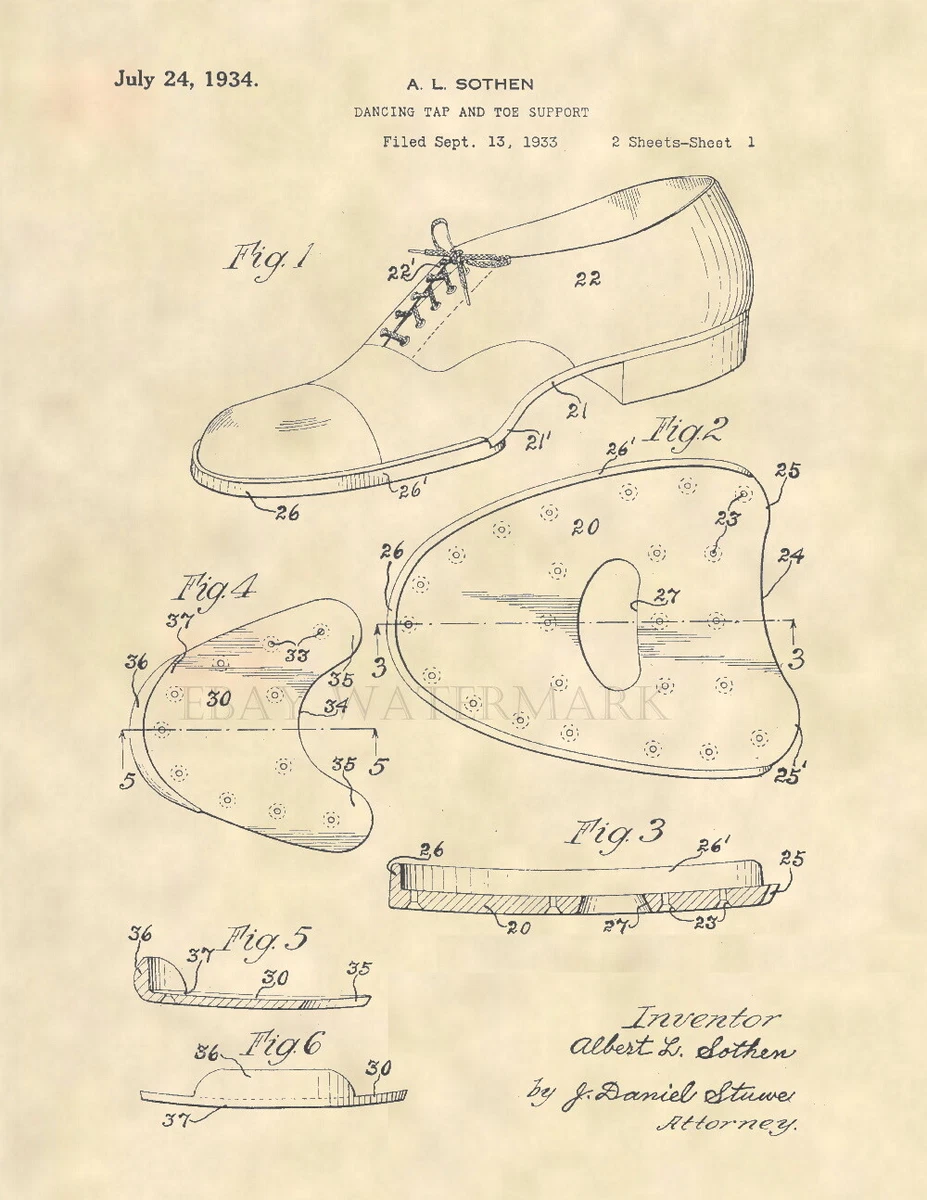 July 24, 1934.
A. L. SOTHEN
DANCING TAP AND TOE SUPPORT
Filed Sept. 13, 1933 2 Sheets-Sheet 1
Fig. 1
22'
22
21
21'
26'
26
Fig. 2
26'
25
23
20
26
24
27
3
3
25'
Fig. 4
37
33
36
35
30
34
5
5
35
EBAY WATERMARK
Fig. 3
26
26'
25
20
27
23
Fig. 5
36
37
30
35
Fig. 6
36
30
37
Inventor
Albert L. Sothen
by J. Daniel Stuwe
Attorney.